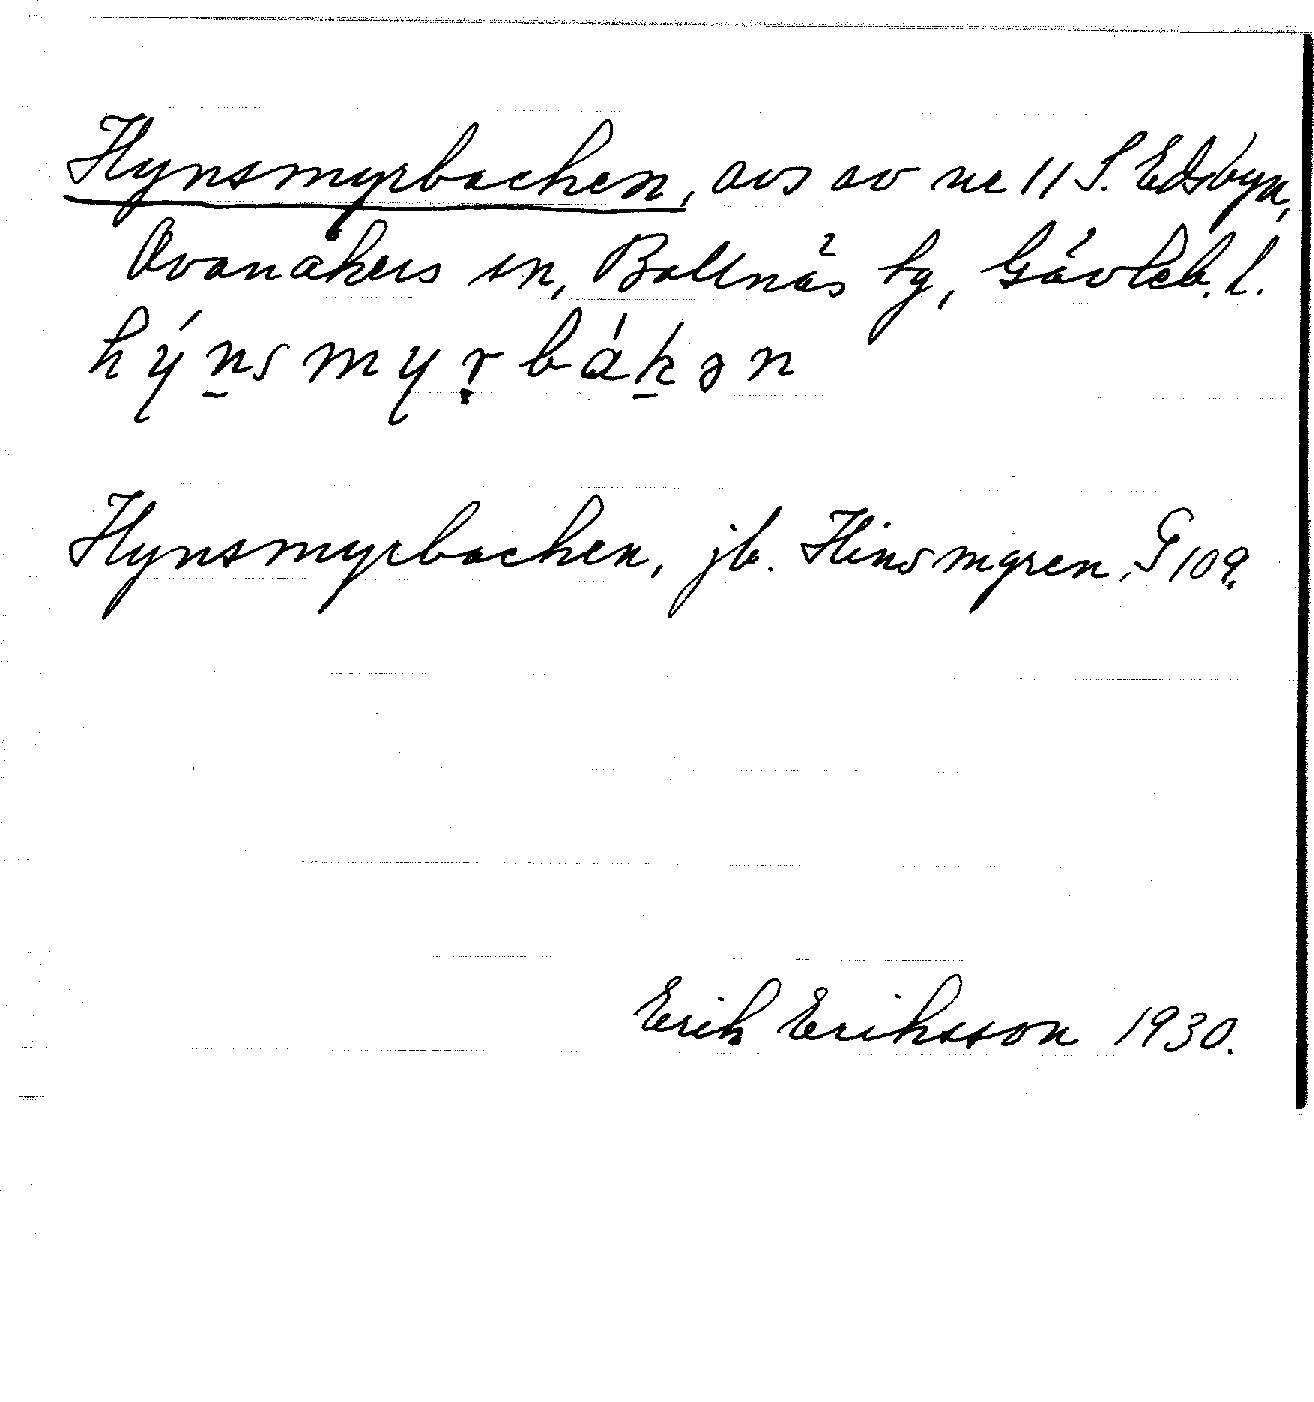 Hynsmyrbacken, avs av nr 11 S. Edsbyn,
Ovanåkers sn, Bollnäs tg, Gävleb. l.
hýn̲smyr̤bák̲ən
Hynsmyrbacken, jb. Hinsmyren, G 109.
Erik Eriksson 1930.